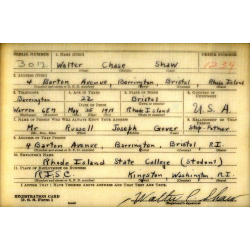 SERIAL NUMBER 1. NAME (Print) ORDER NUMBER
3012 Walter Chase Shaw 1234
2. ADDRESS (Print)
4 Barton Avenue, Barrington, Bristol Rhode Island
3. TELEPHONE 4. AGE IN YEARS 5. PLACE OF BIRTH 6. COUNTRY OF CITIZENSHIP
Barrington 22 Bristol
Warren 679 May 25 1918 Rhode Island U.S.A.
7. NAME OF PERSON WHO WILL ALWAYS KNOW YOUR ADDRESS 8. RELATIONSHIP OF THAT PERSON
Mr Russell Joseph Step-Father
9. ADDRESS OF THAT PERSON
4 Barton Avenue Barrington, Bristol, R.I.
10. EMPLOYER'S NAME
Rhode Island State College (Student)
11. PLACE OF EMPLOYMENT OR BUSINESS
R.I.S.C. Kingston Washington, R.I.
I AFFIRM THAT I HAVE VERIFIED ABOVE ANSWERS AND THAT THEY ARE TRUE.
REGISTRATION CARD
D. S. S. Form 1
Walter C. Shaw